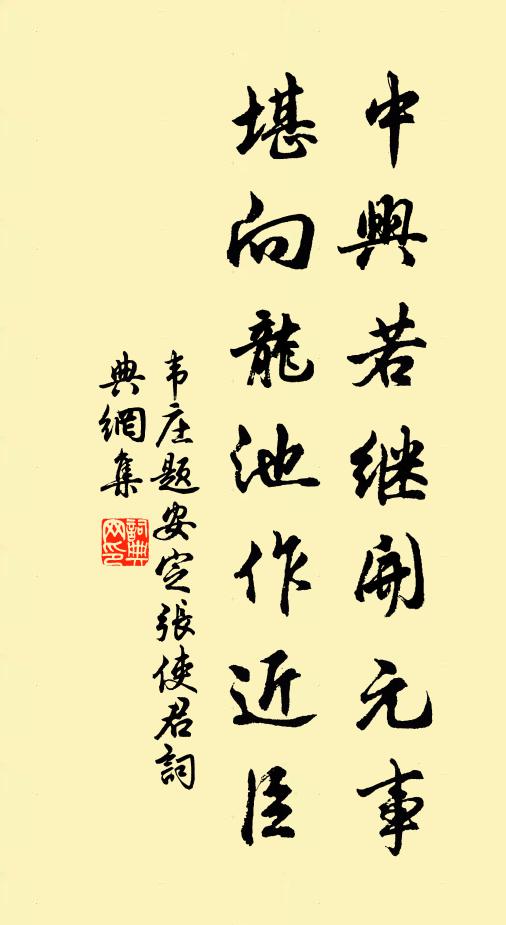 中興若继開元事
堪向龍池作近臣
韦庄题安定張使君詞
典網集
詞典网印